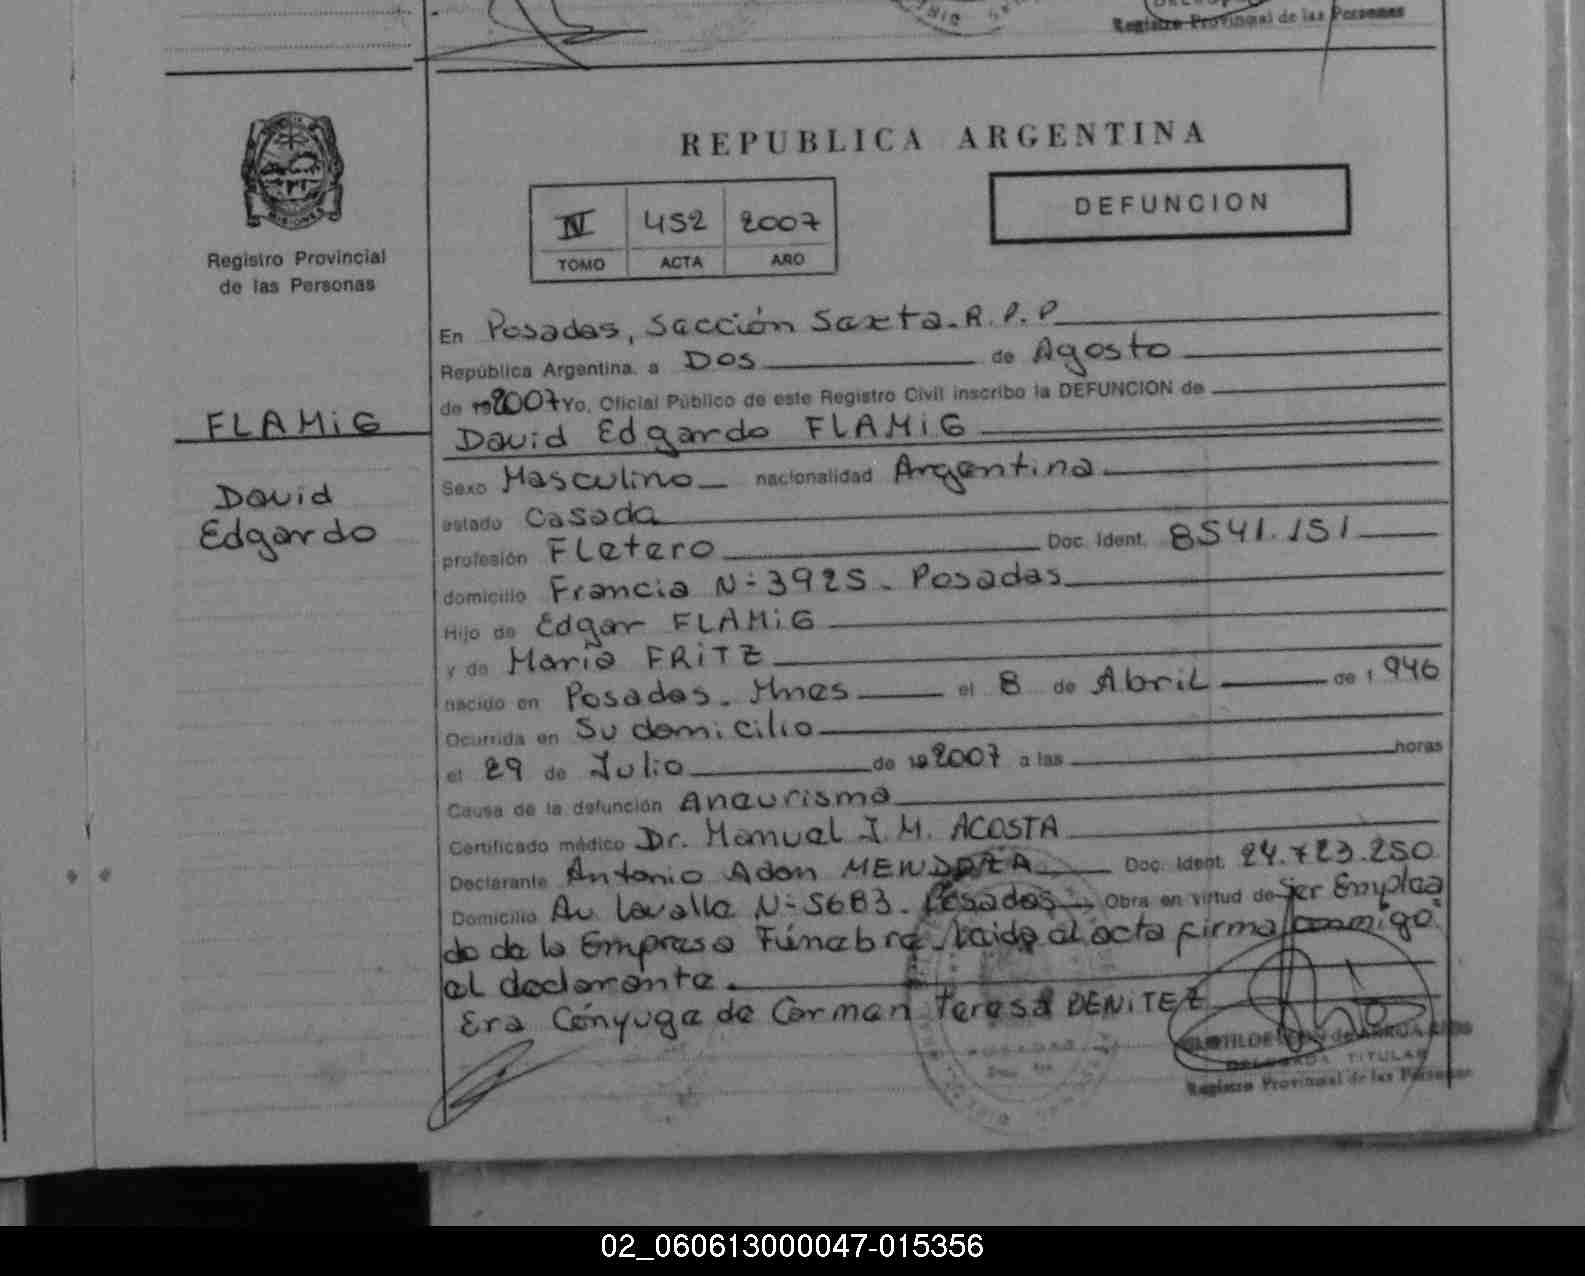 Registro Provincial de las Personas
REPUBLICA ARGENTINA
IV 452 2007
TOMO ACTA AÑO
DEFUNCION
Registro Provincial
de las Personas
FLAMiG
David
Edgardo
En Posadas, Sacción Saxta. R. P. P
República Argentina, a Dos de Agosto
de 19 2007 Yo, Oficial Público de este Registro Civil inscribo la DEFUNCION de
David Edgardo FLAMiG
Sexo Masculino nacionalidad Argentina
estado Casada
profesión Fletero Doc. Ident. 8541.151
domicilio Francia N: 3925. Posadas
Hijo de Edgar FLAMiG
y de Maria FRiTZ
nacido en Posadas. Mnes el 8 de Abril de 1 946
Ocurrida en Su domicilio
el 29 de Julio de 19 2007 a las horas
Causa de la defunción Aneurisma
Certificado médico Dr. Manuel I. M. ACOSTA
Declarante Antonio Adan MENDOZA Doc. Ident. 24.723.250
Domicilio Av. Lavalle N: 5683. Posados. Obra en virtud de Ser Emplea
do de la Empresa Fúnebre. Laida al acta firma conmigo
el declarante.
Era Cónyuge de Carmen Teresa BENiTEZ
DELEGADA TITULAR
Registro Provincial de las Personas
02_060613000047-015356